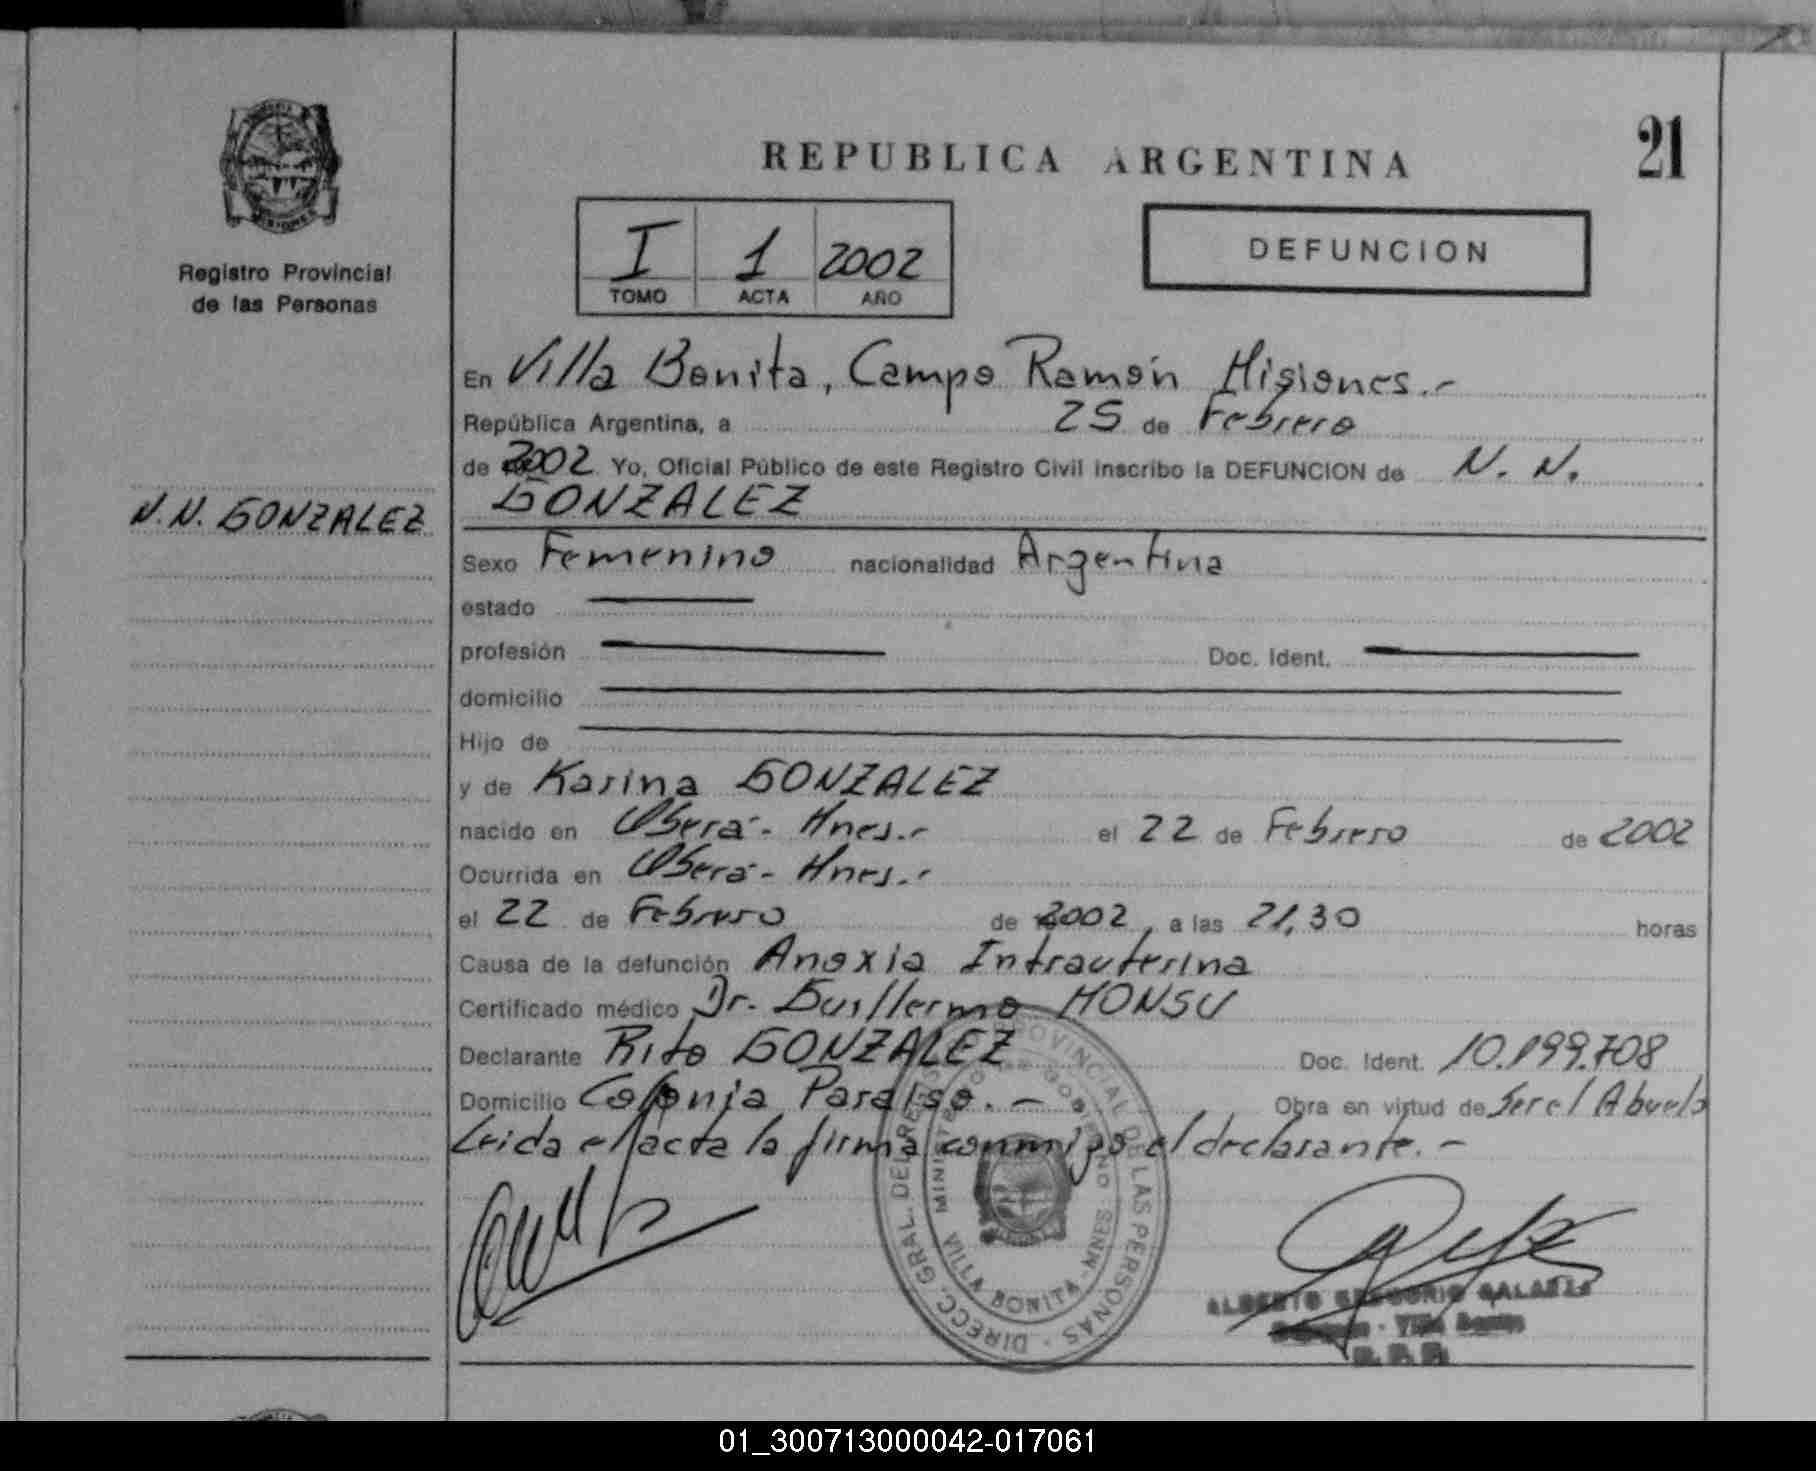 21
REPUBLICA ARGENTINA
DEFUNCION
I 1 2002
TOMO ACTA AÑO
MISIONES
Registro Provincial
de las Personas
N.N. GONZALEZ
En Villa Bonita, Campo Ramón Misiones.-
República Argentina, a 25 de Febrero
de 2002 Yo, Oficial Público de este Registro Civil inscribo la DEFUNCION de N. N.
GONZALEZ
Sexo Femenino nacionalidad Argentina
estado
profesión Doc. Ident.
domicilio
Hijo de
y de Karina GONZALEZ
nacido en Oberá- Mnes.- el 22 de Febrero de 2002
Ocurrida en Oberá- Mnes.-
el 22 de Febrero de 2002, a las 21,30 horas
Causa de la defunción Anoxia Intrauterina
Certificado médico Dr. Guillermo MONSU
Declarante Rito GONZALEZ Doc. Ident. 10.199.708
Domicilio Colonia Paraiso.- Obra en virtud de Ser el Abuelo
Leida el acta la firma conmigo el declarante.-
DIRECC. GRAL. DEL REG. PROVINCIAL DE LAS PERSONAS
MINISTERIO DE GOBIERNO
VILLA BONITA - MNES
ALBERTO GREGORIO GALARZA
Villa Bonita
01_300713000042-017061